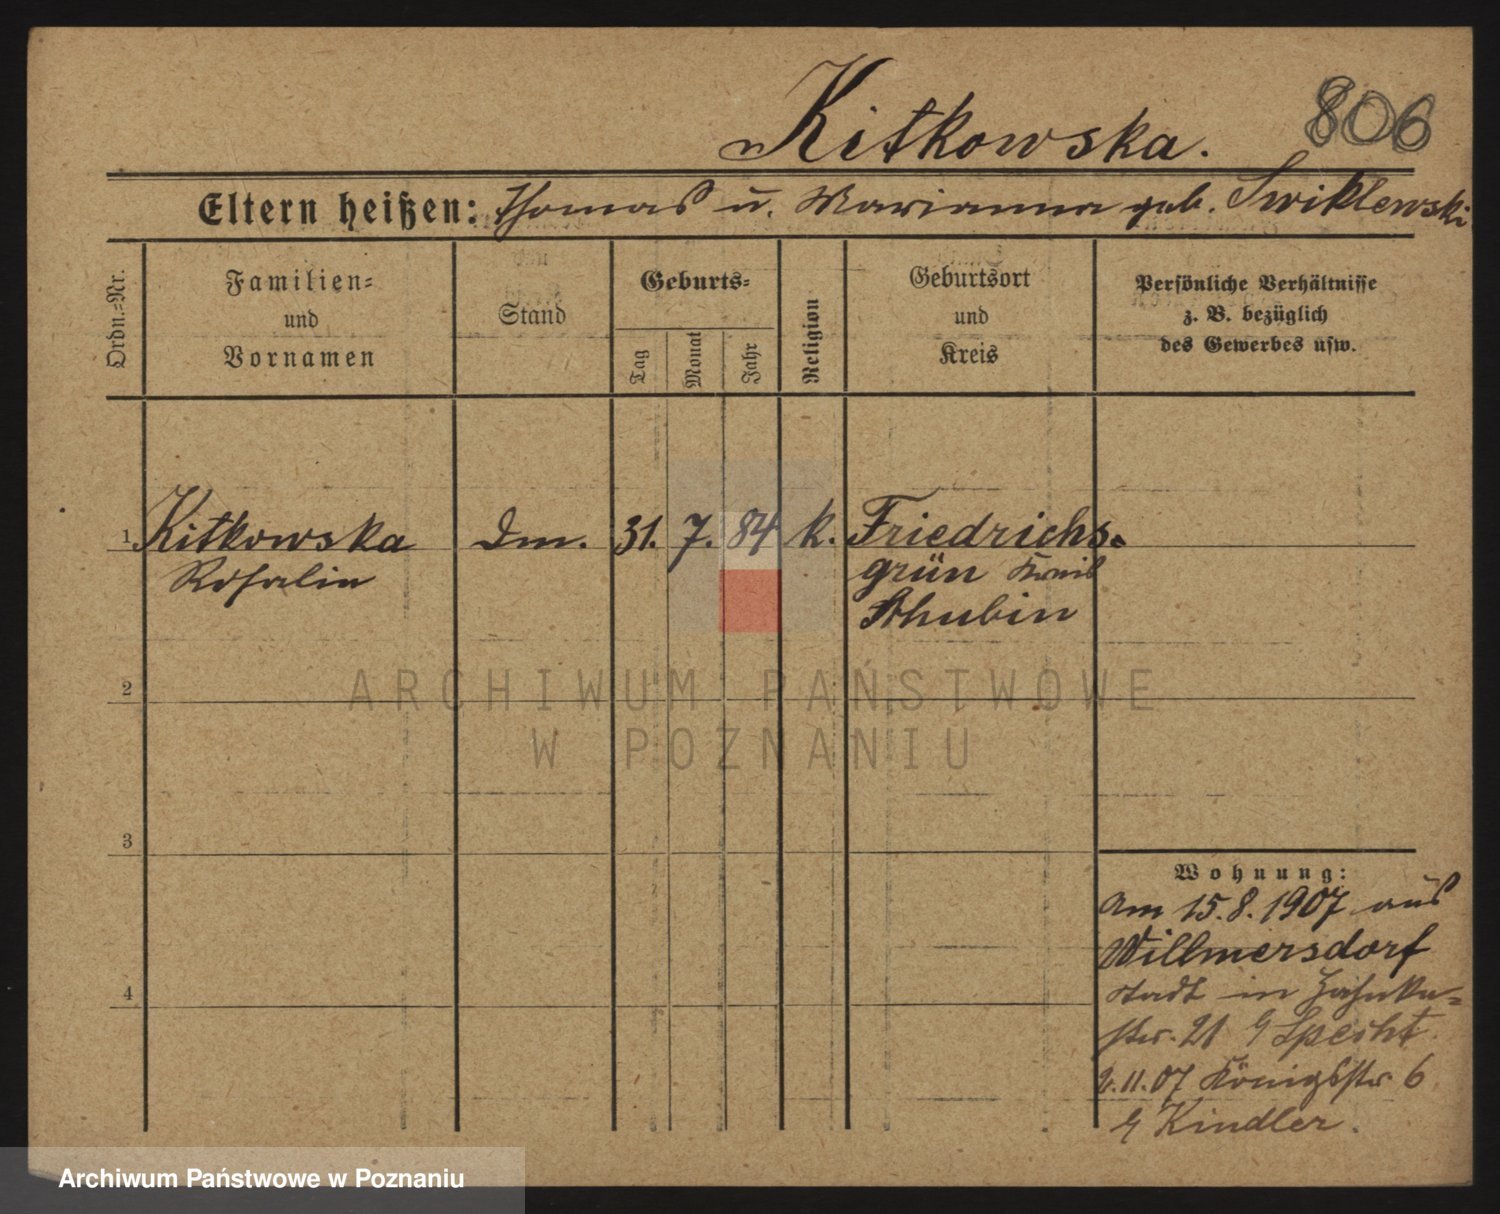 Kitkowska.
806
Eltern heißen: Thomas u. Marianna geb. Swiklewski
Ordn.-Nr.
Familien-
und
Vornamen
Stand
Geburts-
Tag
Monat
Jahr
Religion
Geburtsort
und
Kreis
Persönliche Verhältnisse
z. B. bezüglich
des Gewerbes usw.
1 Kitkowska 31. 7. 84 k. Friedrichs-
Rosalie grün Kreis
Schubin
ARCHIWUM PAŃSTWOWE
W POZNANIU
2
3
4
Wohnung:
Am 15.8.1907 aus
Willmersdorf
Stadt in
str. 21 Specht
2.11.07 Königsstr. 6
Kindler.
Archiwum Państwowe w Poznaniu